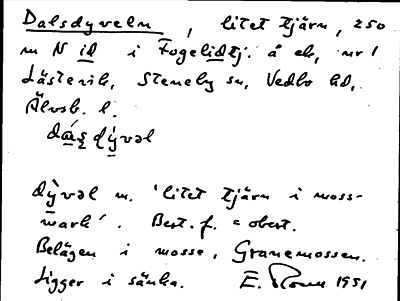 Dalsdyveln, litet tjärn, 250
m N id i Fogelidtj. å ek, nr 1
Lästvik, Steneby sn, Vedbo hd,
Älvsb. l.
dyvəl m. 'litet tjärn i moss-
mark'. Best. f. = obest.
Belägen i mosse, Granemossen.
Ligger i sänka. E. 1951